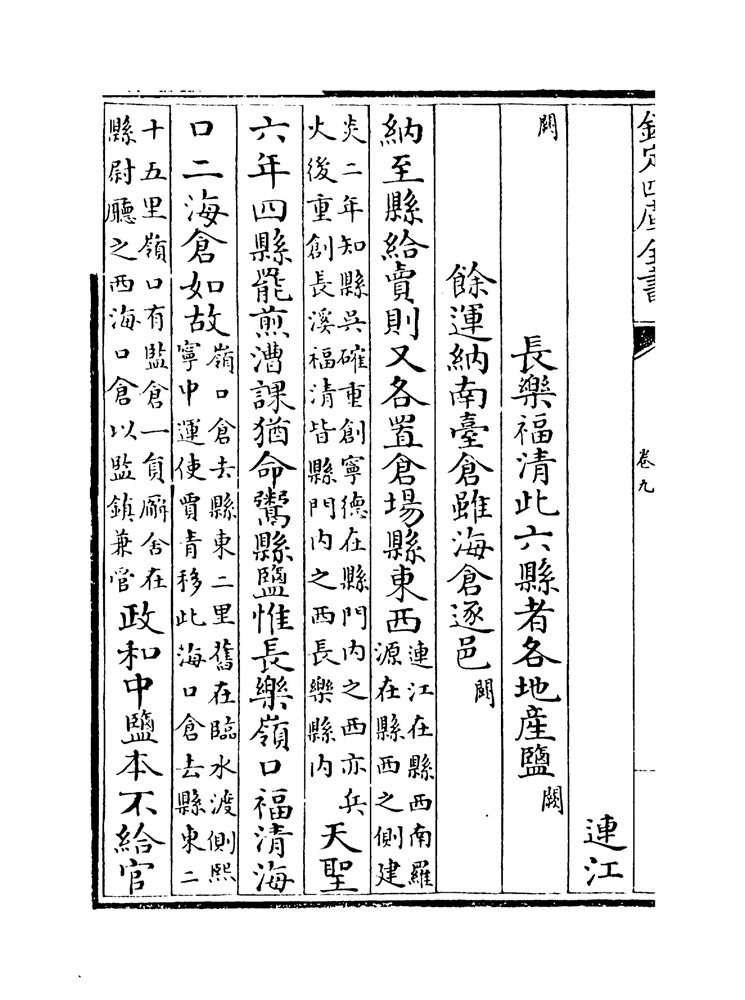 欽定四庫全書
卷九
連江
闕
長樂福清此六縣者各地産鹽闕
餘運納南臺倉雖海倉逐邑闕
納至縣給賣則又各置倉場縣東西
連江在縣西南羅
源在縣西之側建
炎二年知縣吳確重創寧德在縣門内之西亦兵
火後重創長溪福清皆縣門内之西長樂縣内
天聖
六年四縣罷煎漕課猶命鬻縣鹽惟長樂嶺口福清海
口二海倉如故
嶺口倉去縣東二里舊在臨水渡側熙
寧中運使賈青移此海口倉去縣東二
十五里嶺口有監倉一員廨舍在
縣尉廳之西海口倉以監鎮兼管
政和中鹽本不給官